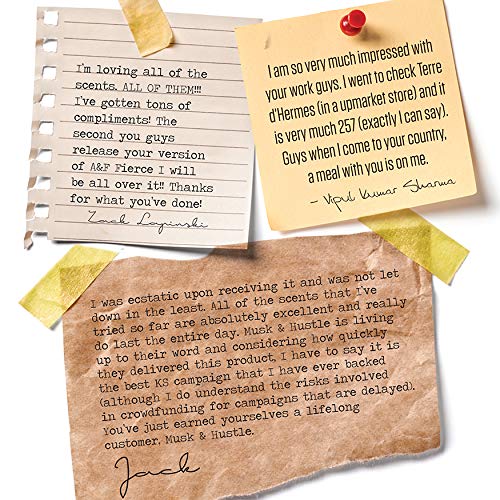 I'm loving all of the
scents. ALL OF THEM!!!
I've gotten tons of
compliments! The
second you guys
release your version
of A&F Fierce I will
be all over it!! Thanks
for what you've done!
Zack Lapinski
I am so very much impressed with
your work guys. I went to check Terre
d'Hermes (in a upmarket store) and it
is very much 257 (exactly I can say).
Guys when I come to your country,
a meal with you is on me.
– Vipul Kumar Sharma
I was ecstatic upon receiving it and was not let
down in the least. All of the scents that I've
tried so far are absolutely excellent and really
do last the entire day. Musk & Hustle is living
up to their word and considering how quickly
they delivered this product, I have to say it is
the best KS campaign that I have ever backed
(although I do understand the risks involved
in crowdfunding for campaigns that are delayed).
You've just earned yourselves a lifelong
customer, Musk & Hustle.
Jack